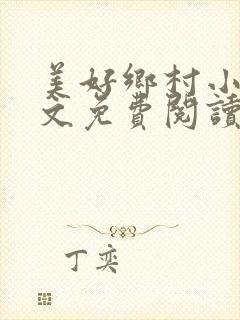 美好鄉村小
文免費閱讀
丁奕